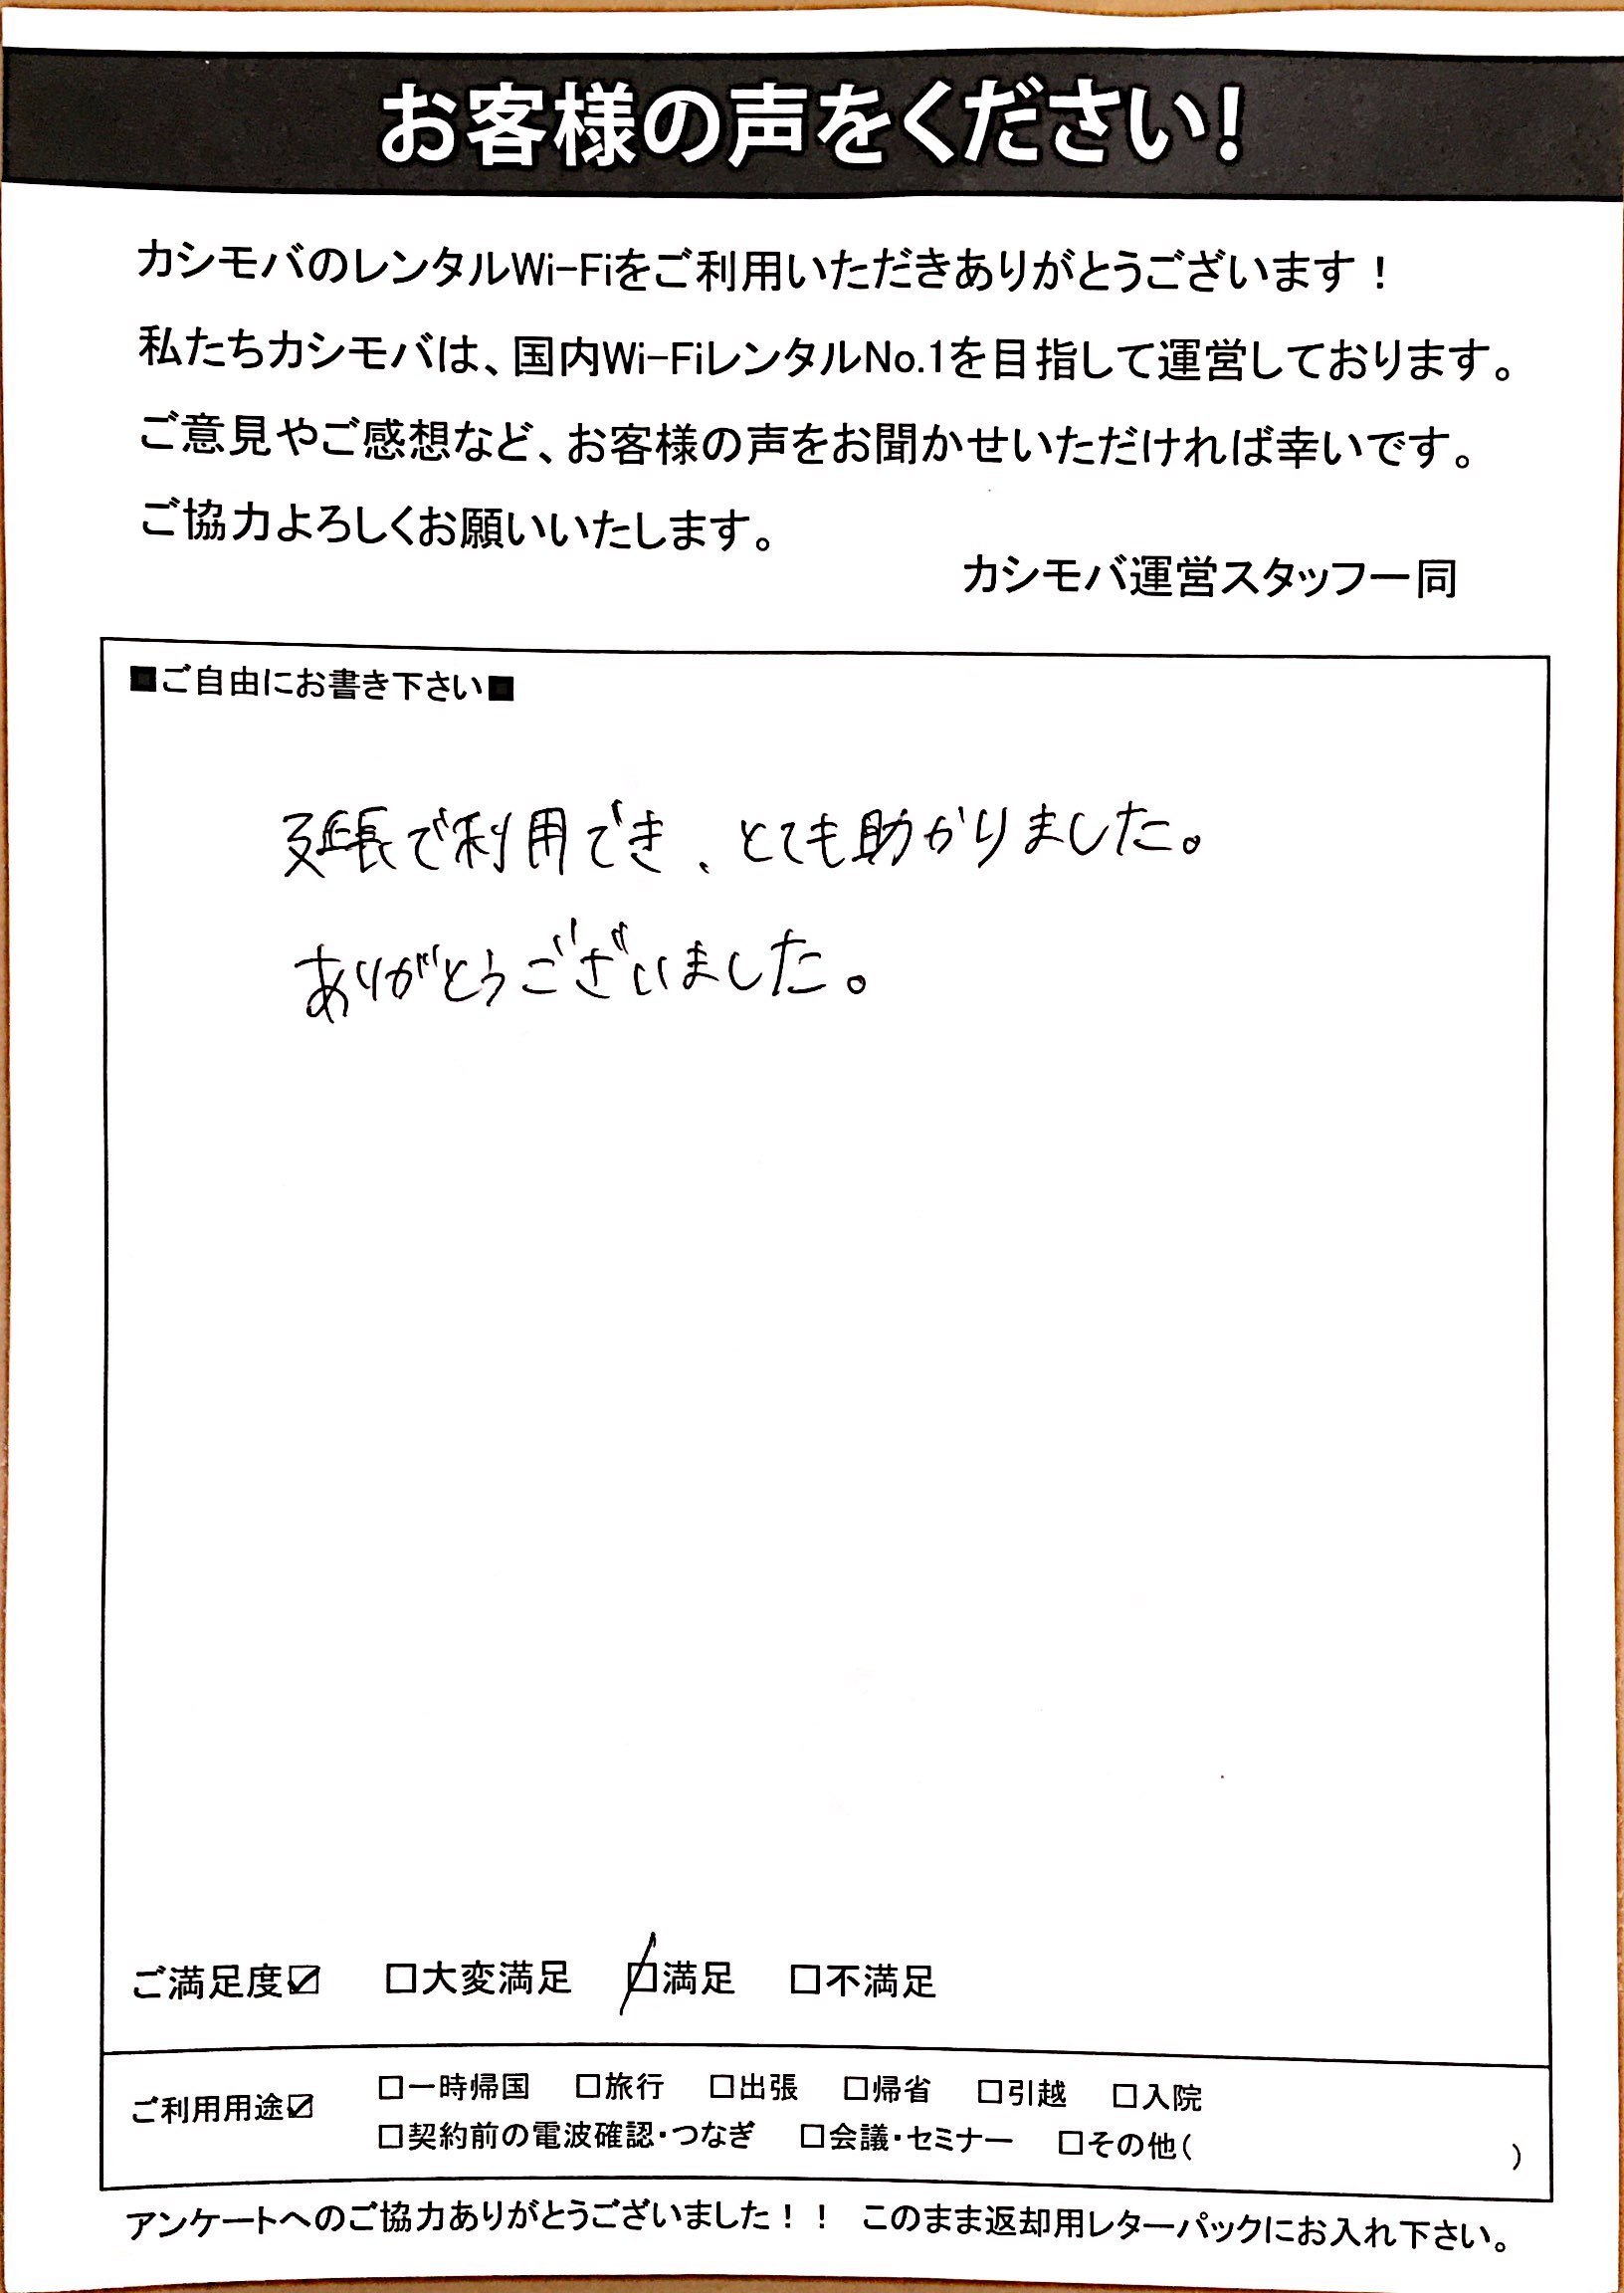 お客様の声をください!
カシモバのレンタルWi-Fiをご利用いただきありがとうございます！
私たちカシモバは、国内Wi-FiレンタルNo.1を目指して運営しております。
ご意見やご感想など、お客様の声をお聞かせいただければ幸いです。
ご協力よろしくお願いいたします。
カシモバ運営スタッフ一同
■ご自由にお書き下さい■
延長で利用でき、とても助かりました。
ありがとうございました。
ご満足度☑ □大変満足 ☑満足 □不満足
ご利用用途☑ □一時帰国 □旅行 □出張 □帰省 □引越 □入院
□契約前の電波確認・つなぎ □会議・セミナー □その他( )
アンケートへのご協力ありがとうございました！！ このまま返却用レターパックにお入れ下さい。